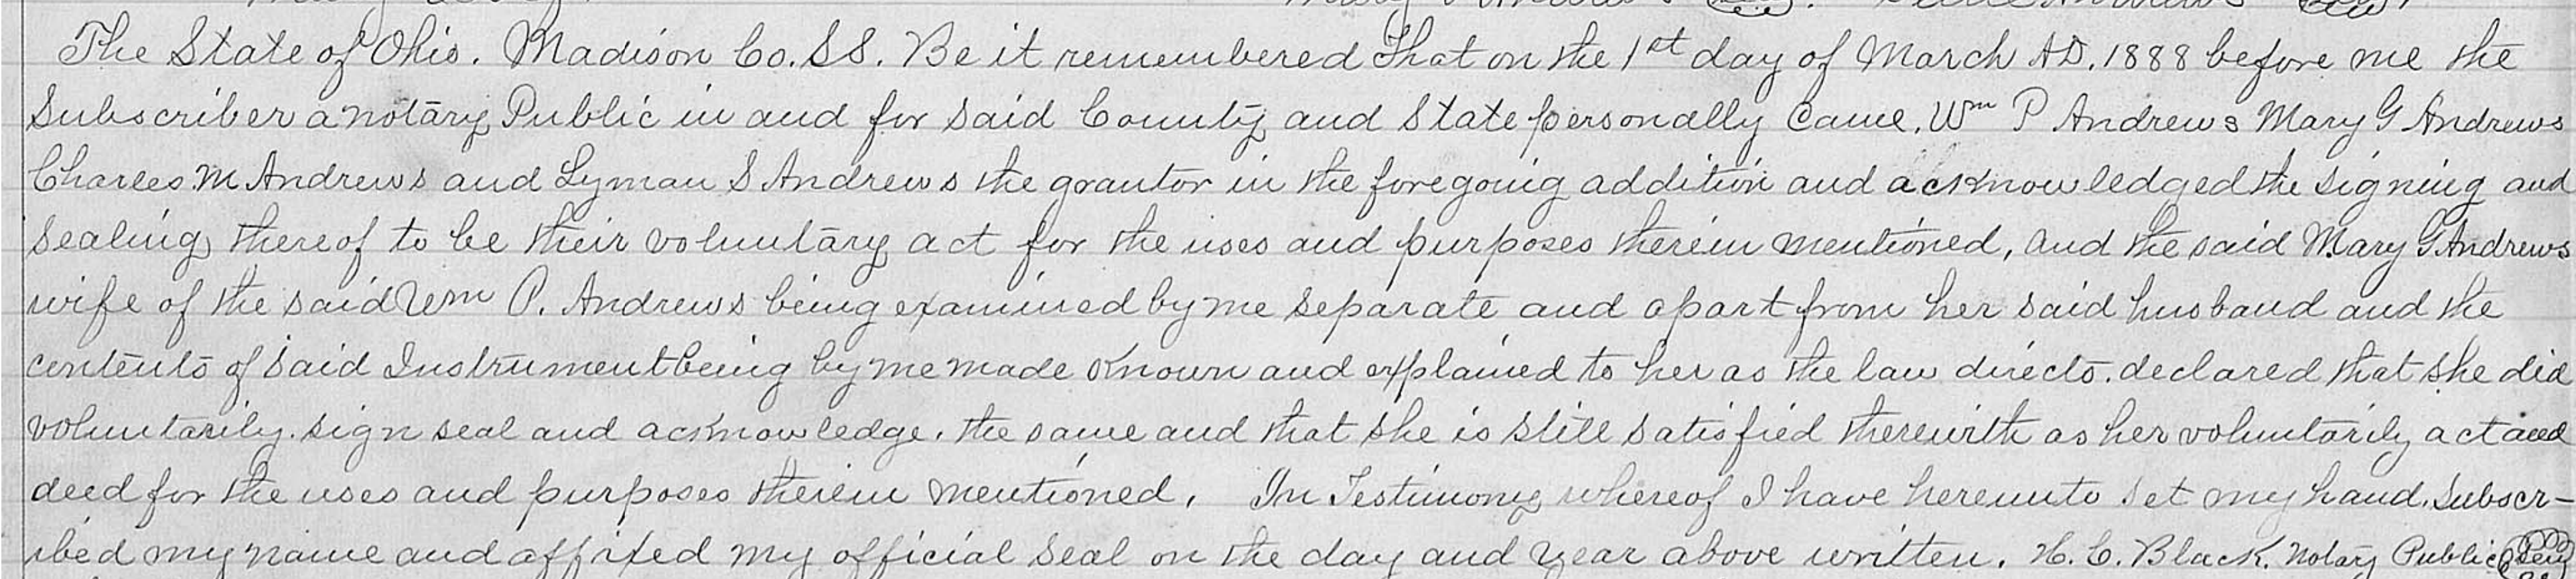 The State of Ohio. Madison Co. SS. Be it remembered that on the 1st day of March AD. 1888 before me the
Subscriber a notary Public in and for said County and State personally came. Wm P Andrews Mary G Andrews
Charles M Andrews and Lyman S Andrews the grantor in the foregoing addition and acknowledged the signing and
sealing thereof to be their voluntary act for the uses and purposes therein mentioned, and the said Mary G Andrews
wife of the said Wm P. Andrews being examined by me separate and apart from her said husband and the
contents of said Instrument being by me made known and explained to her as the law directs. declared that she did
voluntarily. sign seal and acknowledge. the same and that she is still satisfied therewith as her voluntarily act and
deed for the uses and purposes therein mentioned. In Testimony whereof I have hereunto set my hand. subscr-
ibed my name and affixed my official seal on the day and year above written. H. C. Black. Notary Public Seal